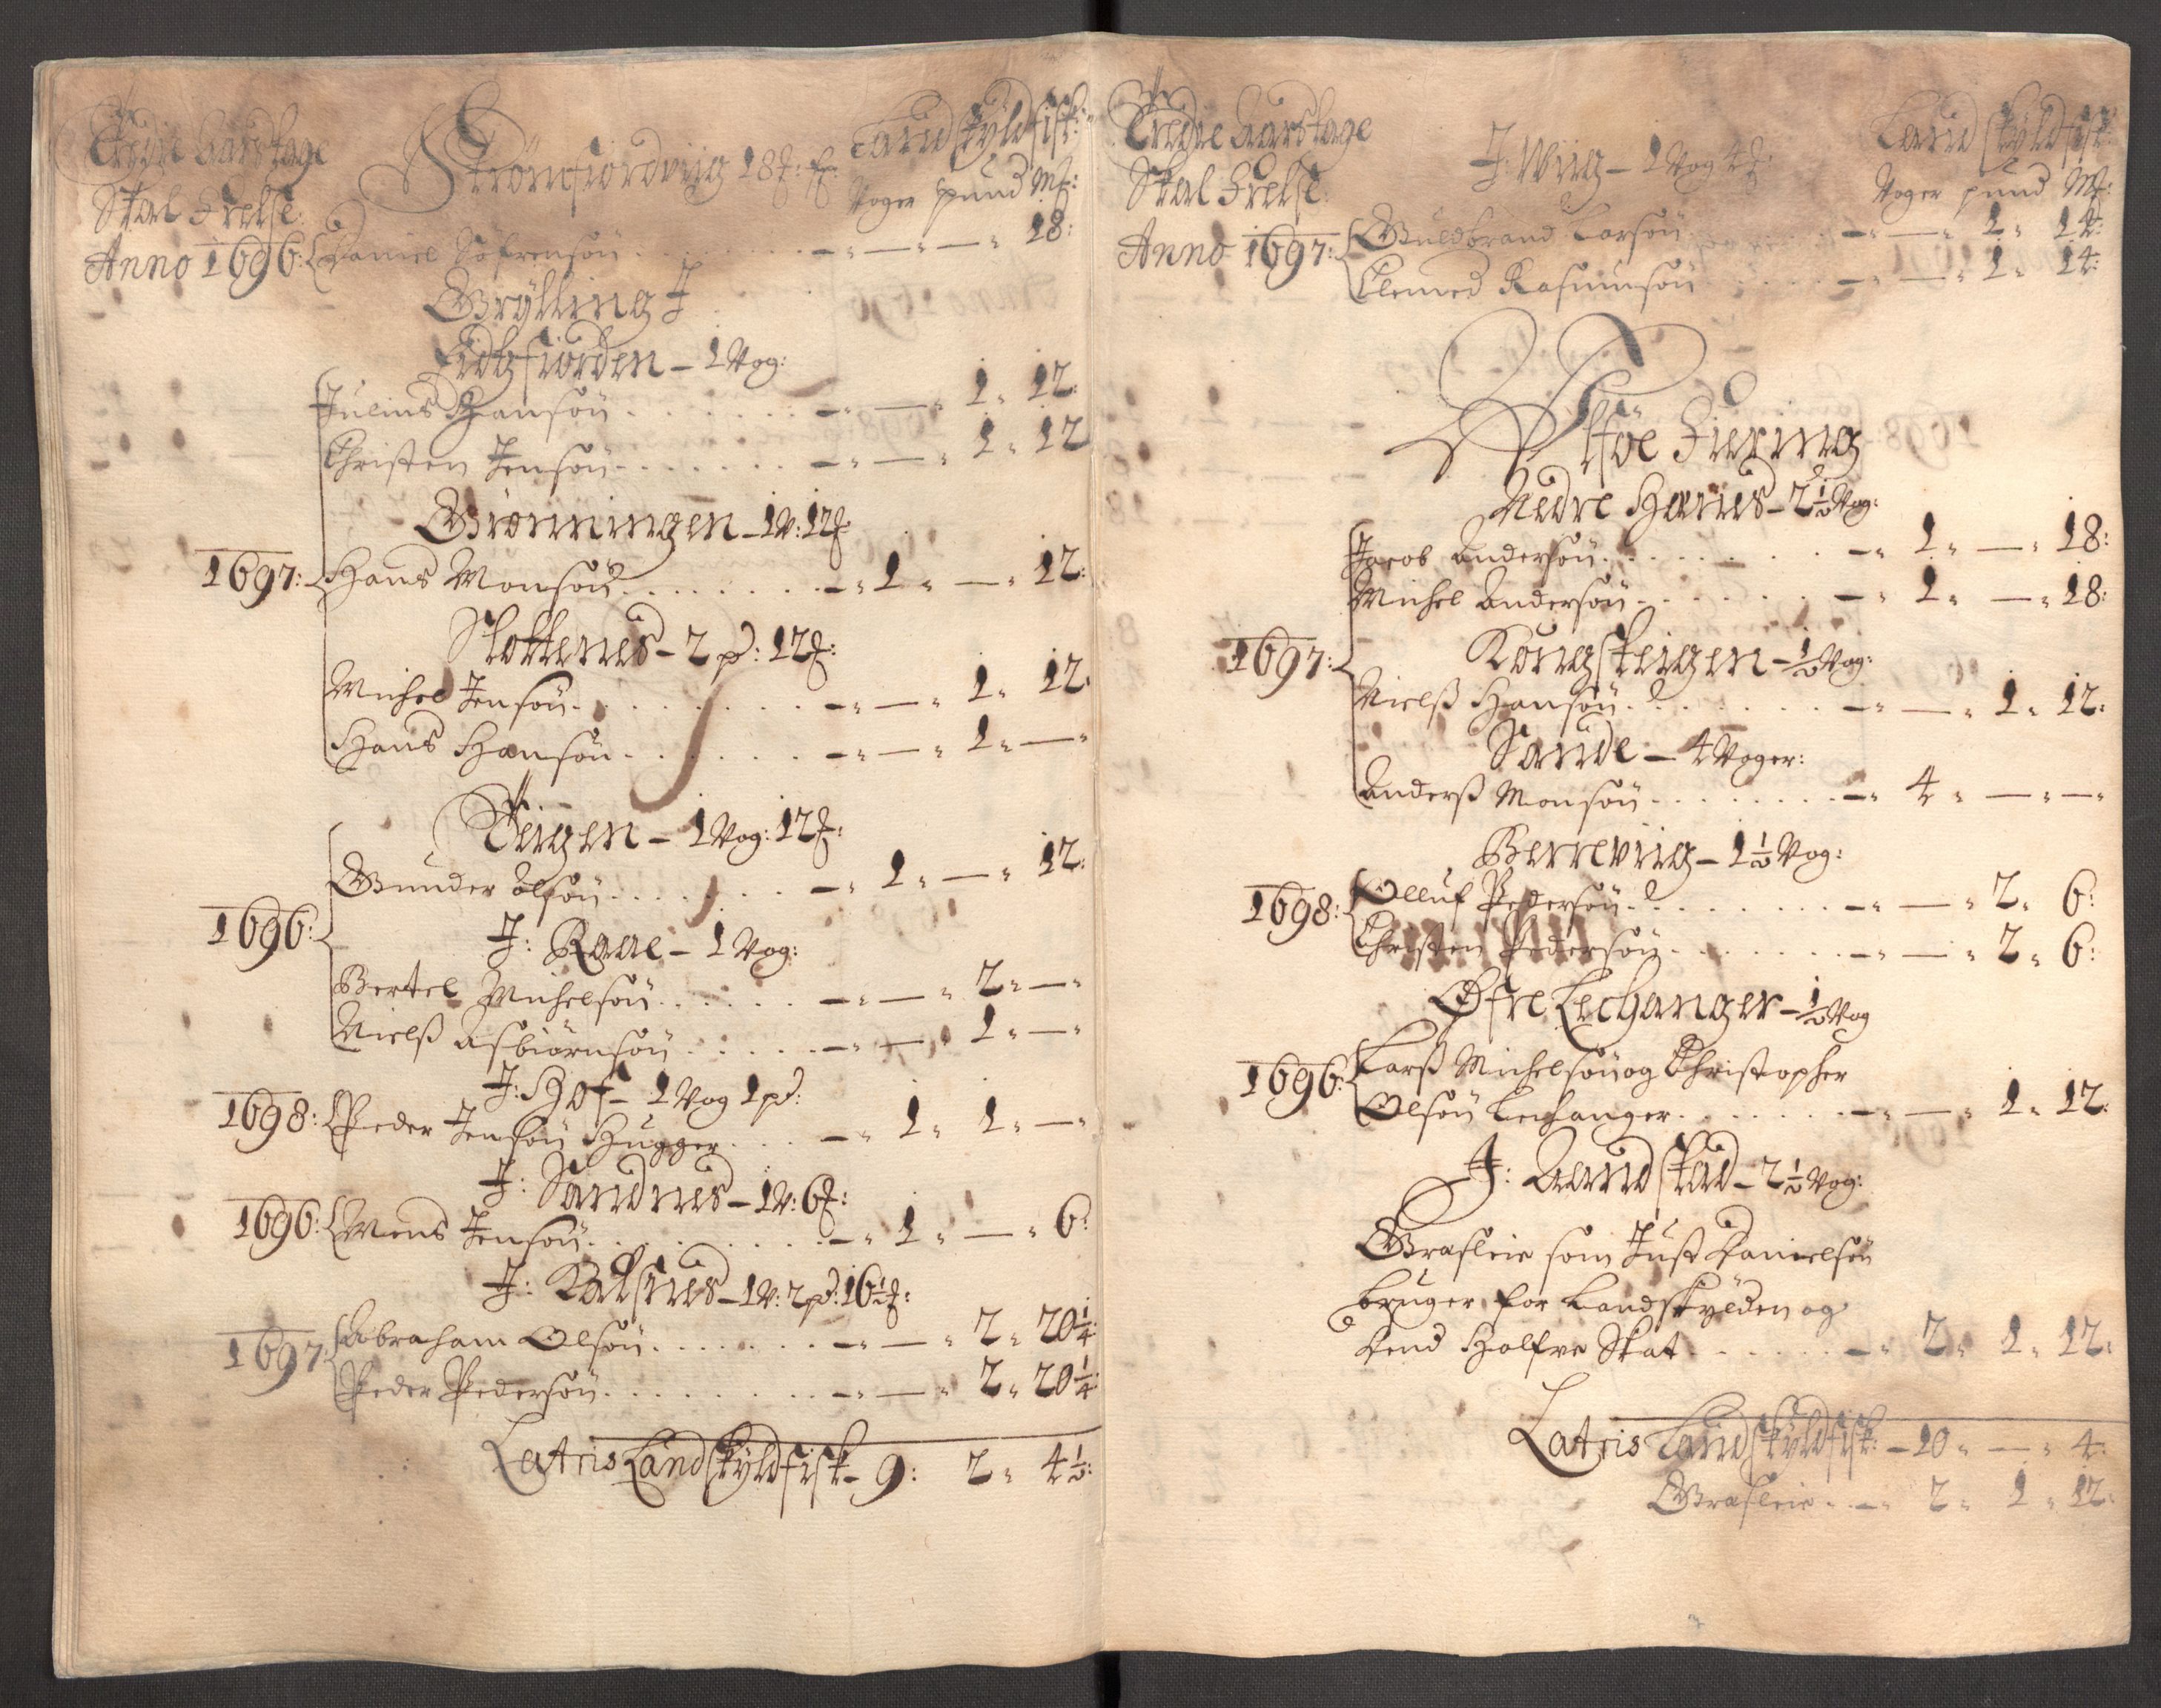 Tredie Aarstage
Skal Erelse:
Strømfiordviig 18 ℔: f:
Land Skyld fisk:
Voger pund Mk:
Anno 1696: Daniel Søfrensøn . . . . . . — „ — „ — „ 18:
Grylling I
Eidtzfiorden – 1 Vog:
Julius Hansøn . . . . . . — „ — „ 1 „ 12:
Christen Jensøn . . . . . . — „ — „ 1 „ 12
Grønningen – 1 V: 12 ℔
1697: Hans Monsøn . . . . . . — „ 1 „ — „ 12:
Slottenes – 2 p: 12 ℔:
Michel Jensøn . . . . . . — „ — „ 1 „ 12:
Hans Hansøn . . . . . . — „ — „ 1 „ — „
Teigen – 1 Vog: 12 ℔:
Gunder Olsøn . . . . . . — „ 1 „ — „ 12:
1696:
I: Raae – 1 Vog:
Bertel Michelsøn . . . . . . — „ — „ 2 „ — „
Nielß Asbiørnsøn . . . . . — „ — „ 1 „ — „
I: Hof – 1 Vog 1 pd:
1698: Peder Jensøn Hugger . . . — „ 1 „ 1 „ — „
I: Sandnes – 1 V: 6 ℔:
1696: Mons Jensøn . . . . . . — „ 1 „ — „ 6:
I: Kalsnes – 1 V: 2 pd: 16½ ℔:
1697: Abraham Olsøn . . . . . . — „ — „ 2 „ 20¼
Peder Pedersøn . . . . . . — „ — „ 2 „ 20¼
Latris Landskyldfisk – 9: 2 „ 4½:
Tredie Aarstage
Skal Erelse:
I: Wiig – 1 Vog 4 ℔:
Land Skyld fisk:
Voger pund Mk:
Anno 1697: Guldbrand Larsøn . . . . — „ — „ 1 „ 14:
Clemed Rasmusøn . . . . — „ — „ 1 „ 14:
Iføe Fiering
Nedre Hernes – 2½ Vog:
Jacob Andersøn . . . . . . — „ 1 „ — „ 18:
Michel Andersøn . . . . . . — „ 1 „ — „ 18:
1697:
Kongsteigen – ½ Vog:
Nielß Hansøn . . . . . . — „ — „ 1 „ 12:
Sande – 4 Voger:
Anderß Monsøn . . . . . . — „ 4 „ — „ — „
Berreviig – 1½ Vog:
1698: Olluf Pedersøn . . . . . . — „ — „ 2 „ 6:
Christen Pedersøn . . . . . . — „ — „ 2 „ 6:
Øfre Lechanger – ½ Vog
1696: Larß Michelsøn og Christopher
Olsøn Lechanger . . . . . . — „ — „ 1 „ 12:
I: Aand Stad – 2½ Vog:
Grasleie som Just Danielsøn
bruger for Landskylden og
dend Halfve Skat . . . . . . — „ 2 „ 1 „ 12:
Latris Landskyldfisk: – 10 „ — „ 4:
Grasleie . . — „ 2 „ 1 „ 12: